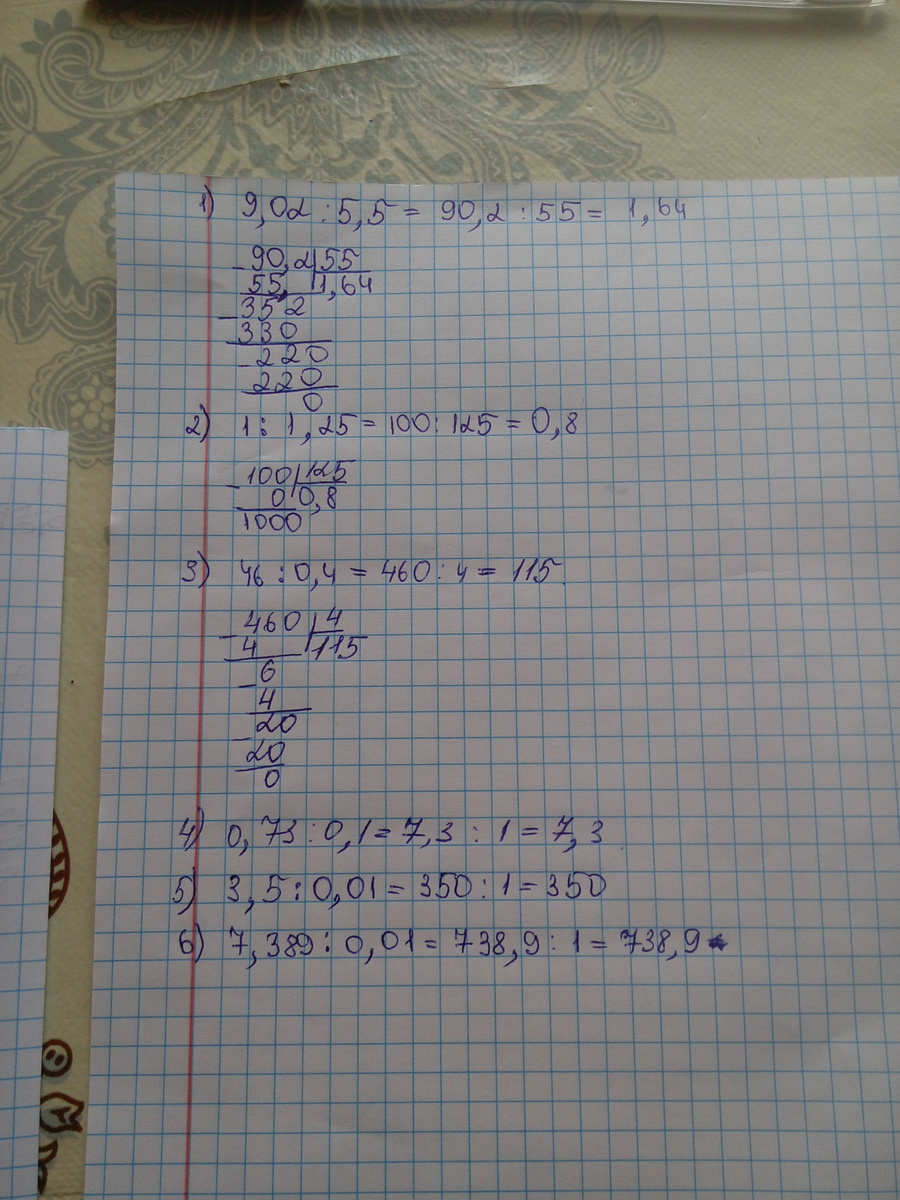 1) 9,02 : 5,5 = 90,2 : 55 = 1,64
- 90,2 | 55
55, | 1,64
- 352
330
- 220
220
0
2) 1 : 1,25 = 100 : 125 = 0,8
- 100 | 125
0 | 0,8
1000
3) 46 : 0,4 = 460 : 4 = 115.
- 460 | 4
4 | 115
- 6
4
- 20
20
0
4) 0,73 : 0,1 = 7,3 : 1 = 7,3
5) 3,5 : 0,01 = 350 : 1 = 350
6) 7,389 : 0,01 = 738,9 : 1 = 738,9